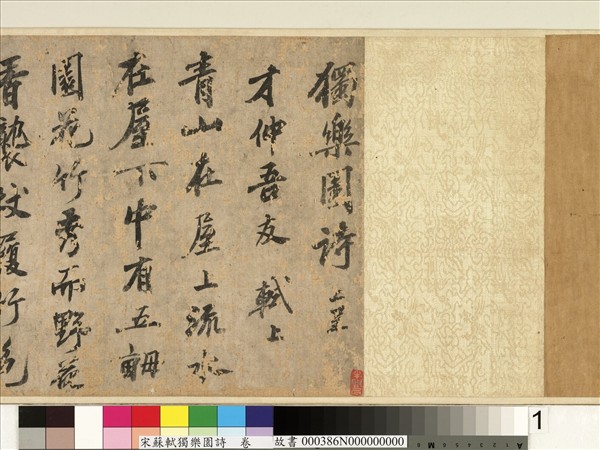 獨樂園詩
才仲吾友 軾上
青山在屋上流水
在屋下中有五畝
園花竹秀而野花
香襲杖履竹色
宋蘇軾獨樂園詩 卷 故書 000386N000000000
1